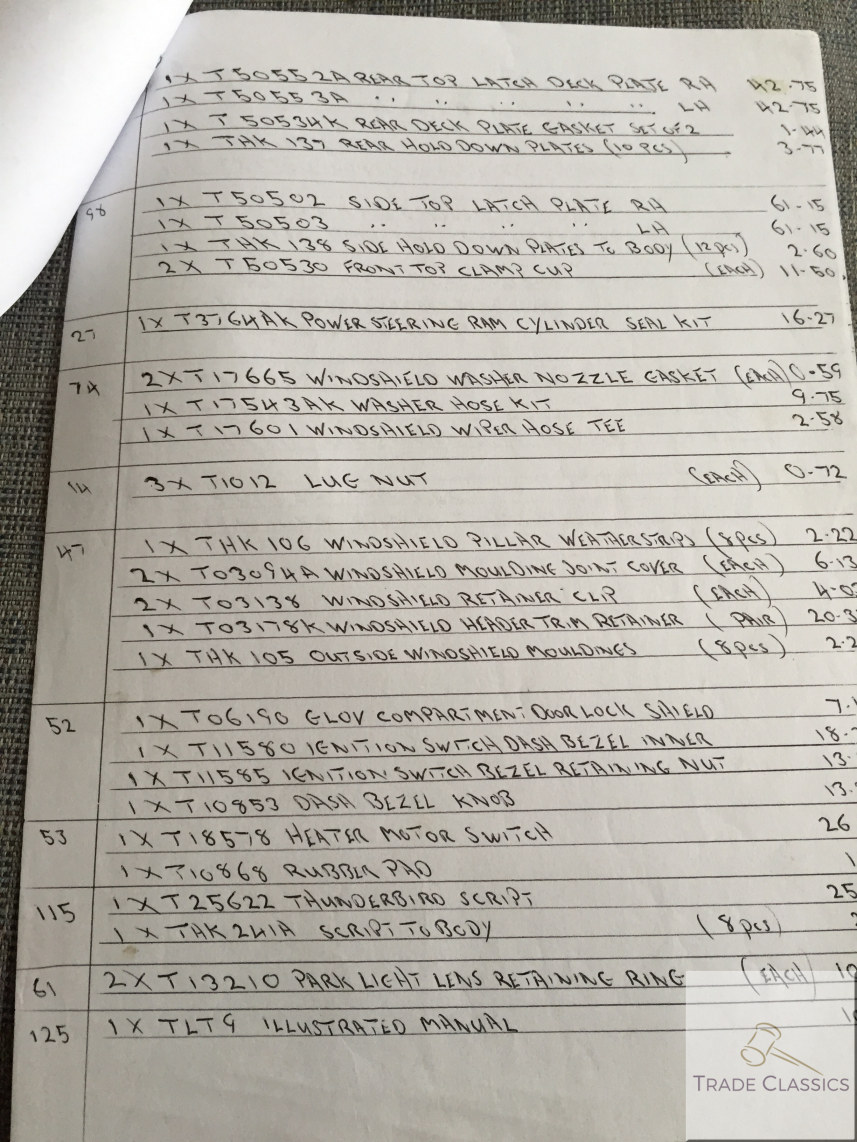 1 X T50552A REAR TOP LATCH DECK PLATE RH 42.75
1X T50553A " " " " " LH 42-75
1X T 50534K REAR DECK PLATE GASKET SET OF 2 1-44
1X THK 137 REAR HOLD DOWN PLATES (10 PCS) 3-77
98 1X T50502 SIDE TOP LATCH PLATE RH 61-15
1X T50503 " " " " LH 61-15
1X THK 138 SIDE HOLD DOWN PLATES TO BODY (12 pcs) 2.60
2X T50530 FRONT TOP CLAMP CUP (EACH) 11-50
27 1X T3764AK POWER STEERING RAM CYLINDER SEAL KIT 16-27
74 2XT17665 WINDSHIELD WASHER NOZZLE GASKET (EACH) 0.59
1X T17543AK WASHER HOSE KIT 9-75
1X T17601 WINDSHIELD WIPER HOSE TEE 2-58
14 3X T1012 LUG NUT (EACH) 0-72
47 1X THK 106 WINDSHIELD PILLAR WEATHERSTRIPS (8 pcs) 2.22
2X T03094A WINDSHIELD MOULDING JOINT COVER (EACH) 6-13
2X T03138 WINDSHIELD RETAINER CLIP (EACH) 4-0
1X T03178K WINDSHIELD HEADER TRIM RETAINER ( PAIR) 20-3
1X THK 105 OUTSIDE WINDSHIELD MOULDINGS (8 pcs) 2.2
52 1X T06190 GLOV COMPARTMENT DOOR LOCK SHIELD 7.
1X T11580 IGNITION SWITCH DASH BEZEL INNER 18-
1X T11585 IGNITION SWITCH BEZEL RETAINING NUT 13-
1X T10853 DASH BEZEL KNOB 13.
53 1X T18578 HEATER MOTOR SWITCH 26
1X T10868 RUBBER PAD 1
115 1X T25622 THUNDERBIRD SCRIPT 25
1X THK 241A SCRIPT TO BODY (8 pcs)
61 2X T13210 PARK LIGHT LENS RETAINING RING (EACH) 10
125 1X TLT9 ILLUSTRATED MANUAL
TRADE CLASSICS